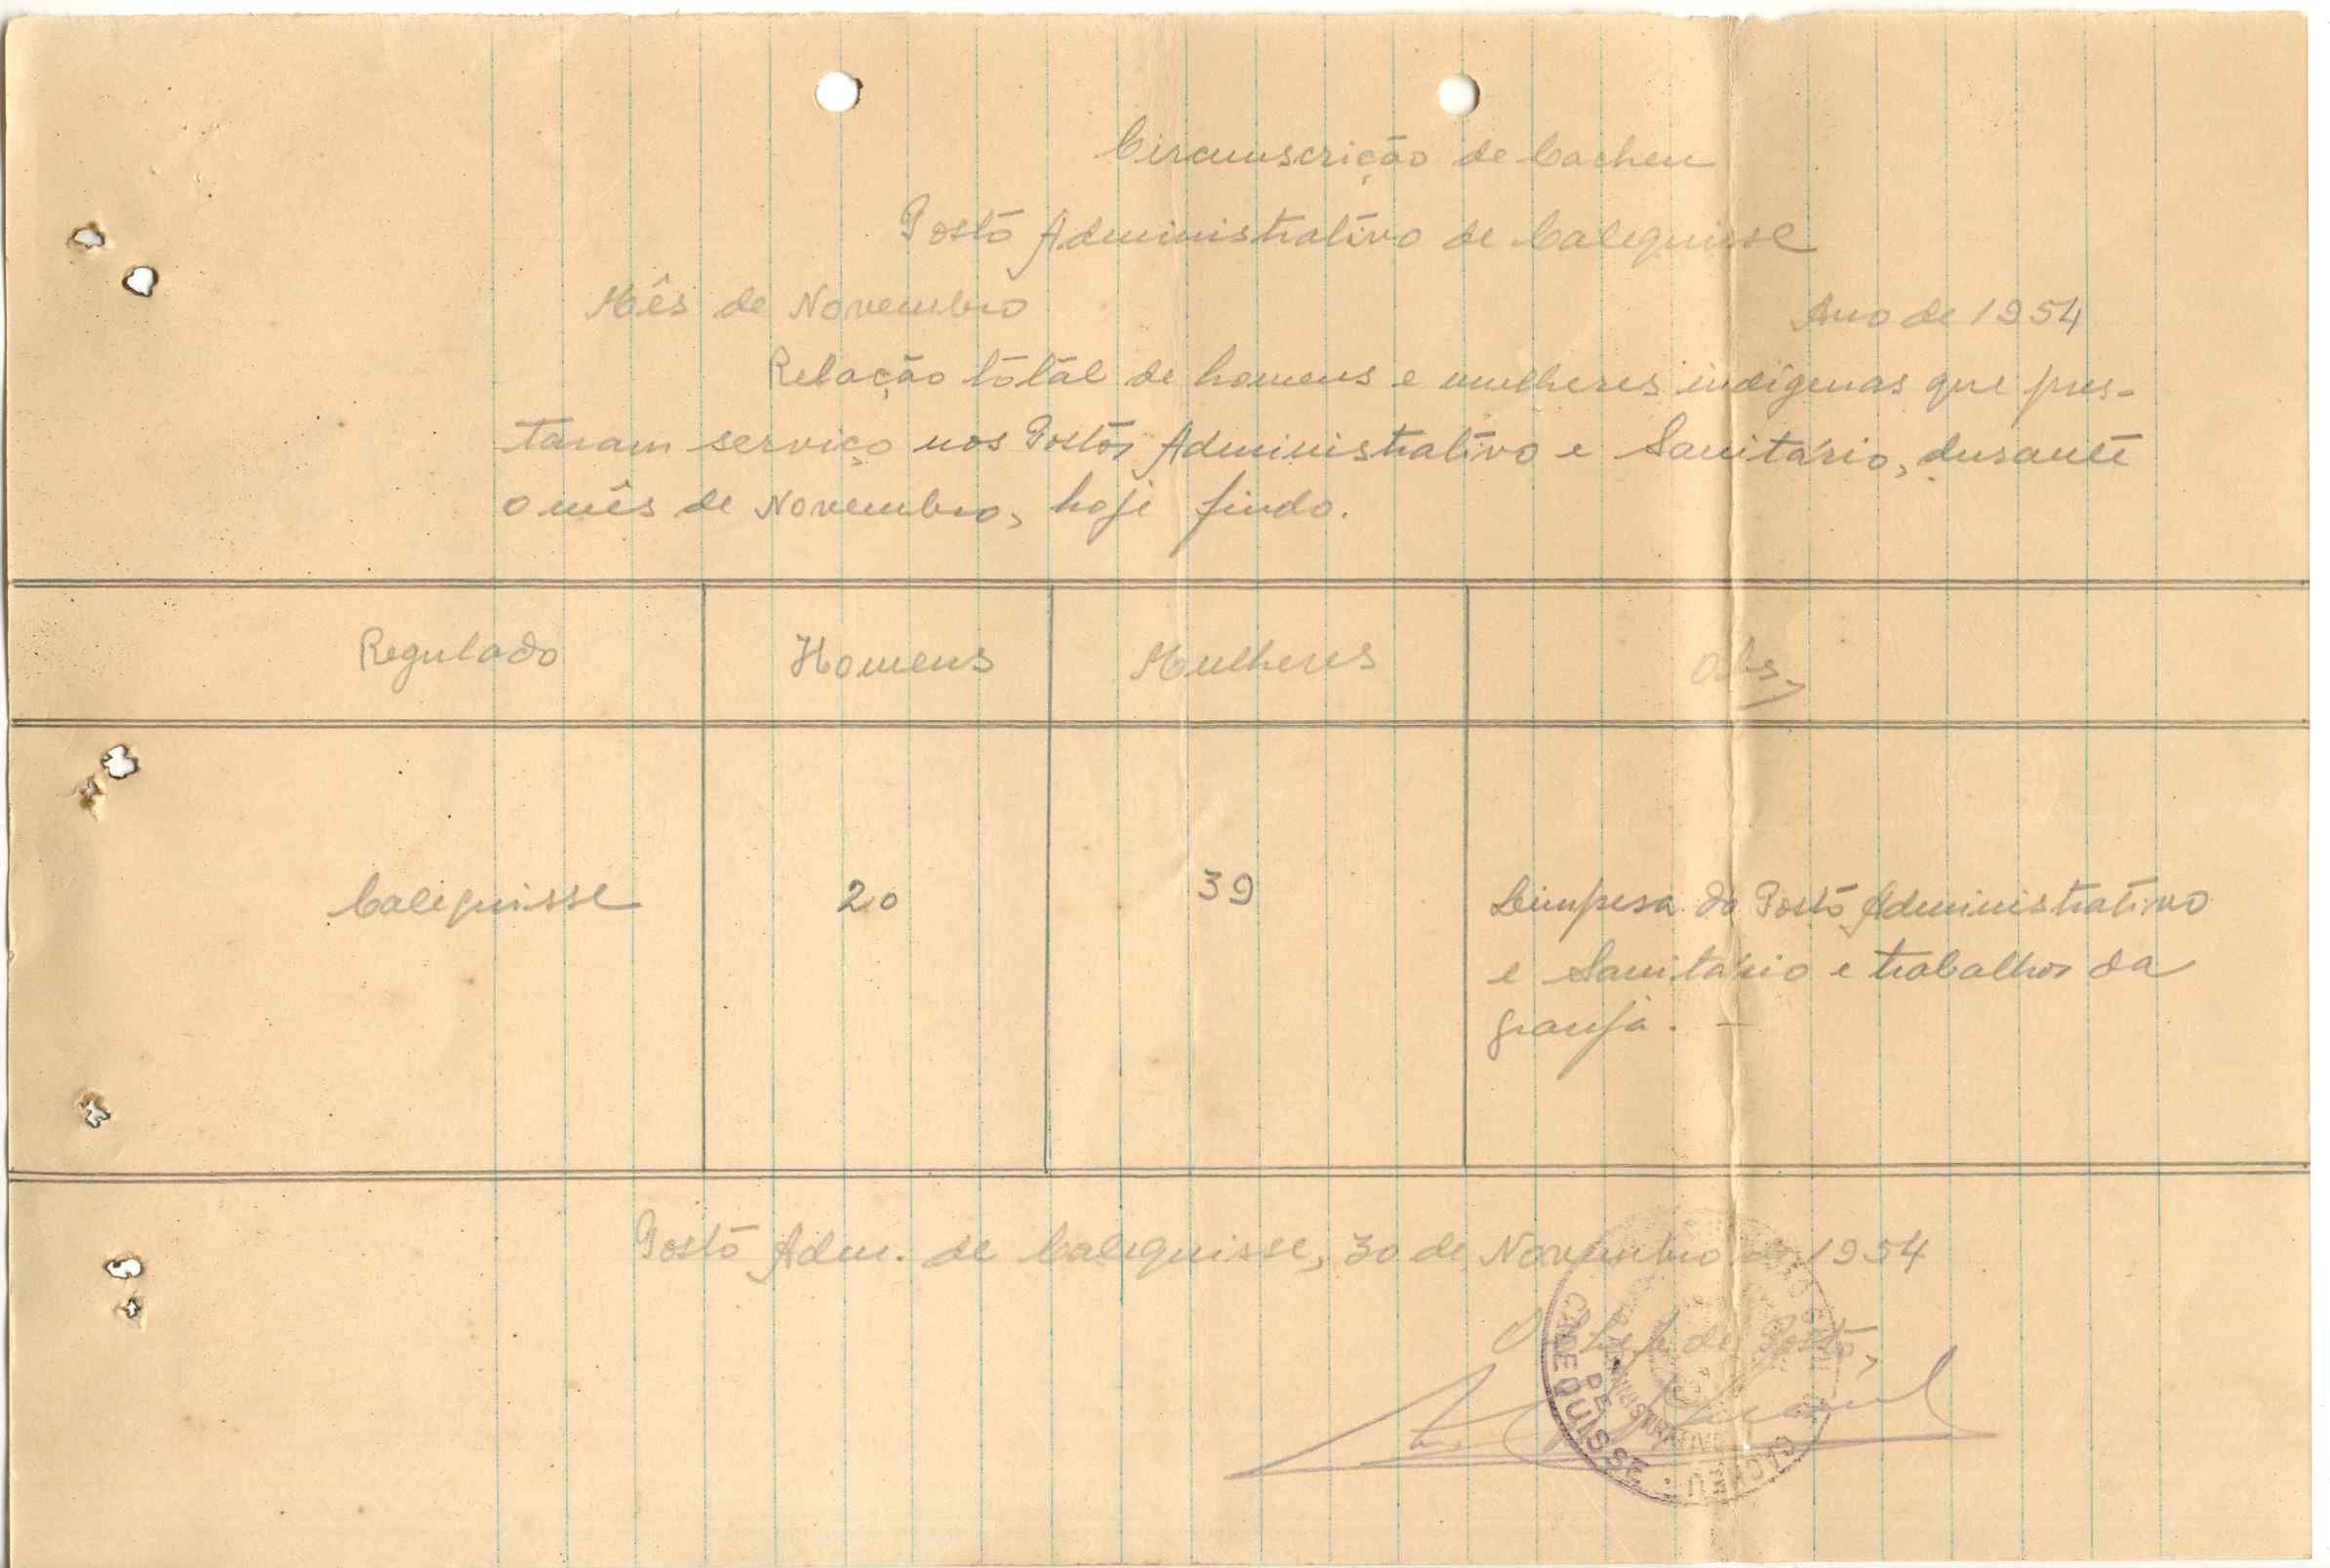 Circunscrição de Cacheu
Posto Administrativo de Calequisse
Mês de Novembro Ano de 1954
Relação total de homens e mulheres indígenas que pres-
taram serviço nos Postos Administrativo e Sanitário, durante
o mês de Novembro, hoje findo.
Regulado Homens Mulheres Obs,
Calequisse 20 39 Limpesa do Posto Administrativo
e Sanitário e trabalhos da
granja. —
Posto Adm. de Calequisse, 30 de Novembro de 1954
O Chefe de Posto,
ADMINISTRATIVO
DE
CALEQUISSE
CACHEU